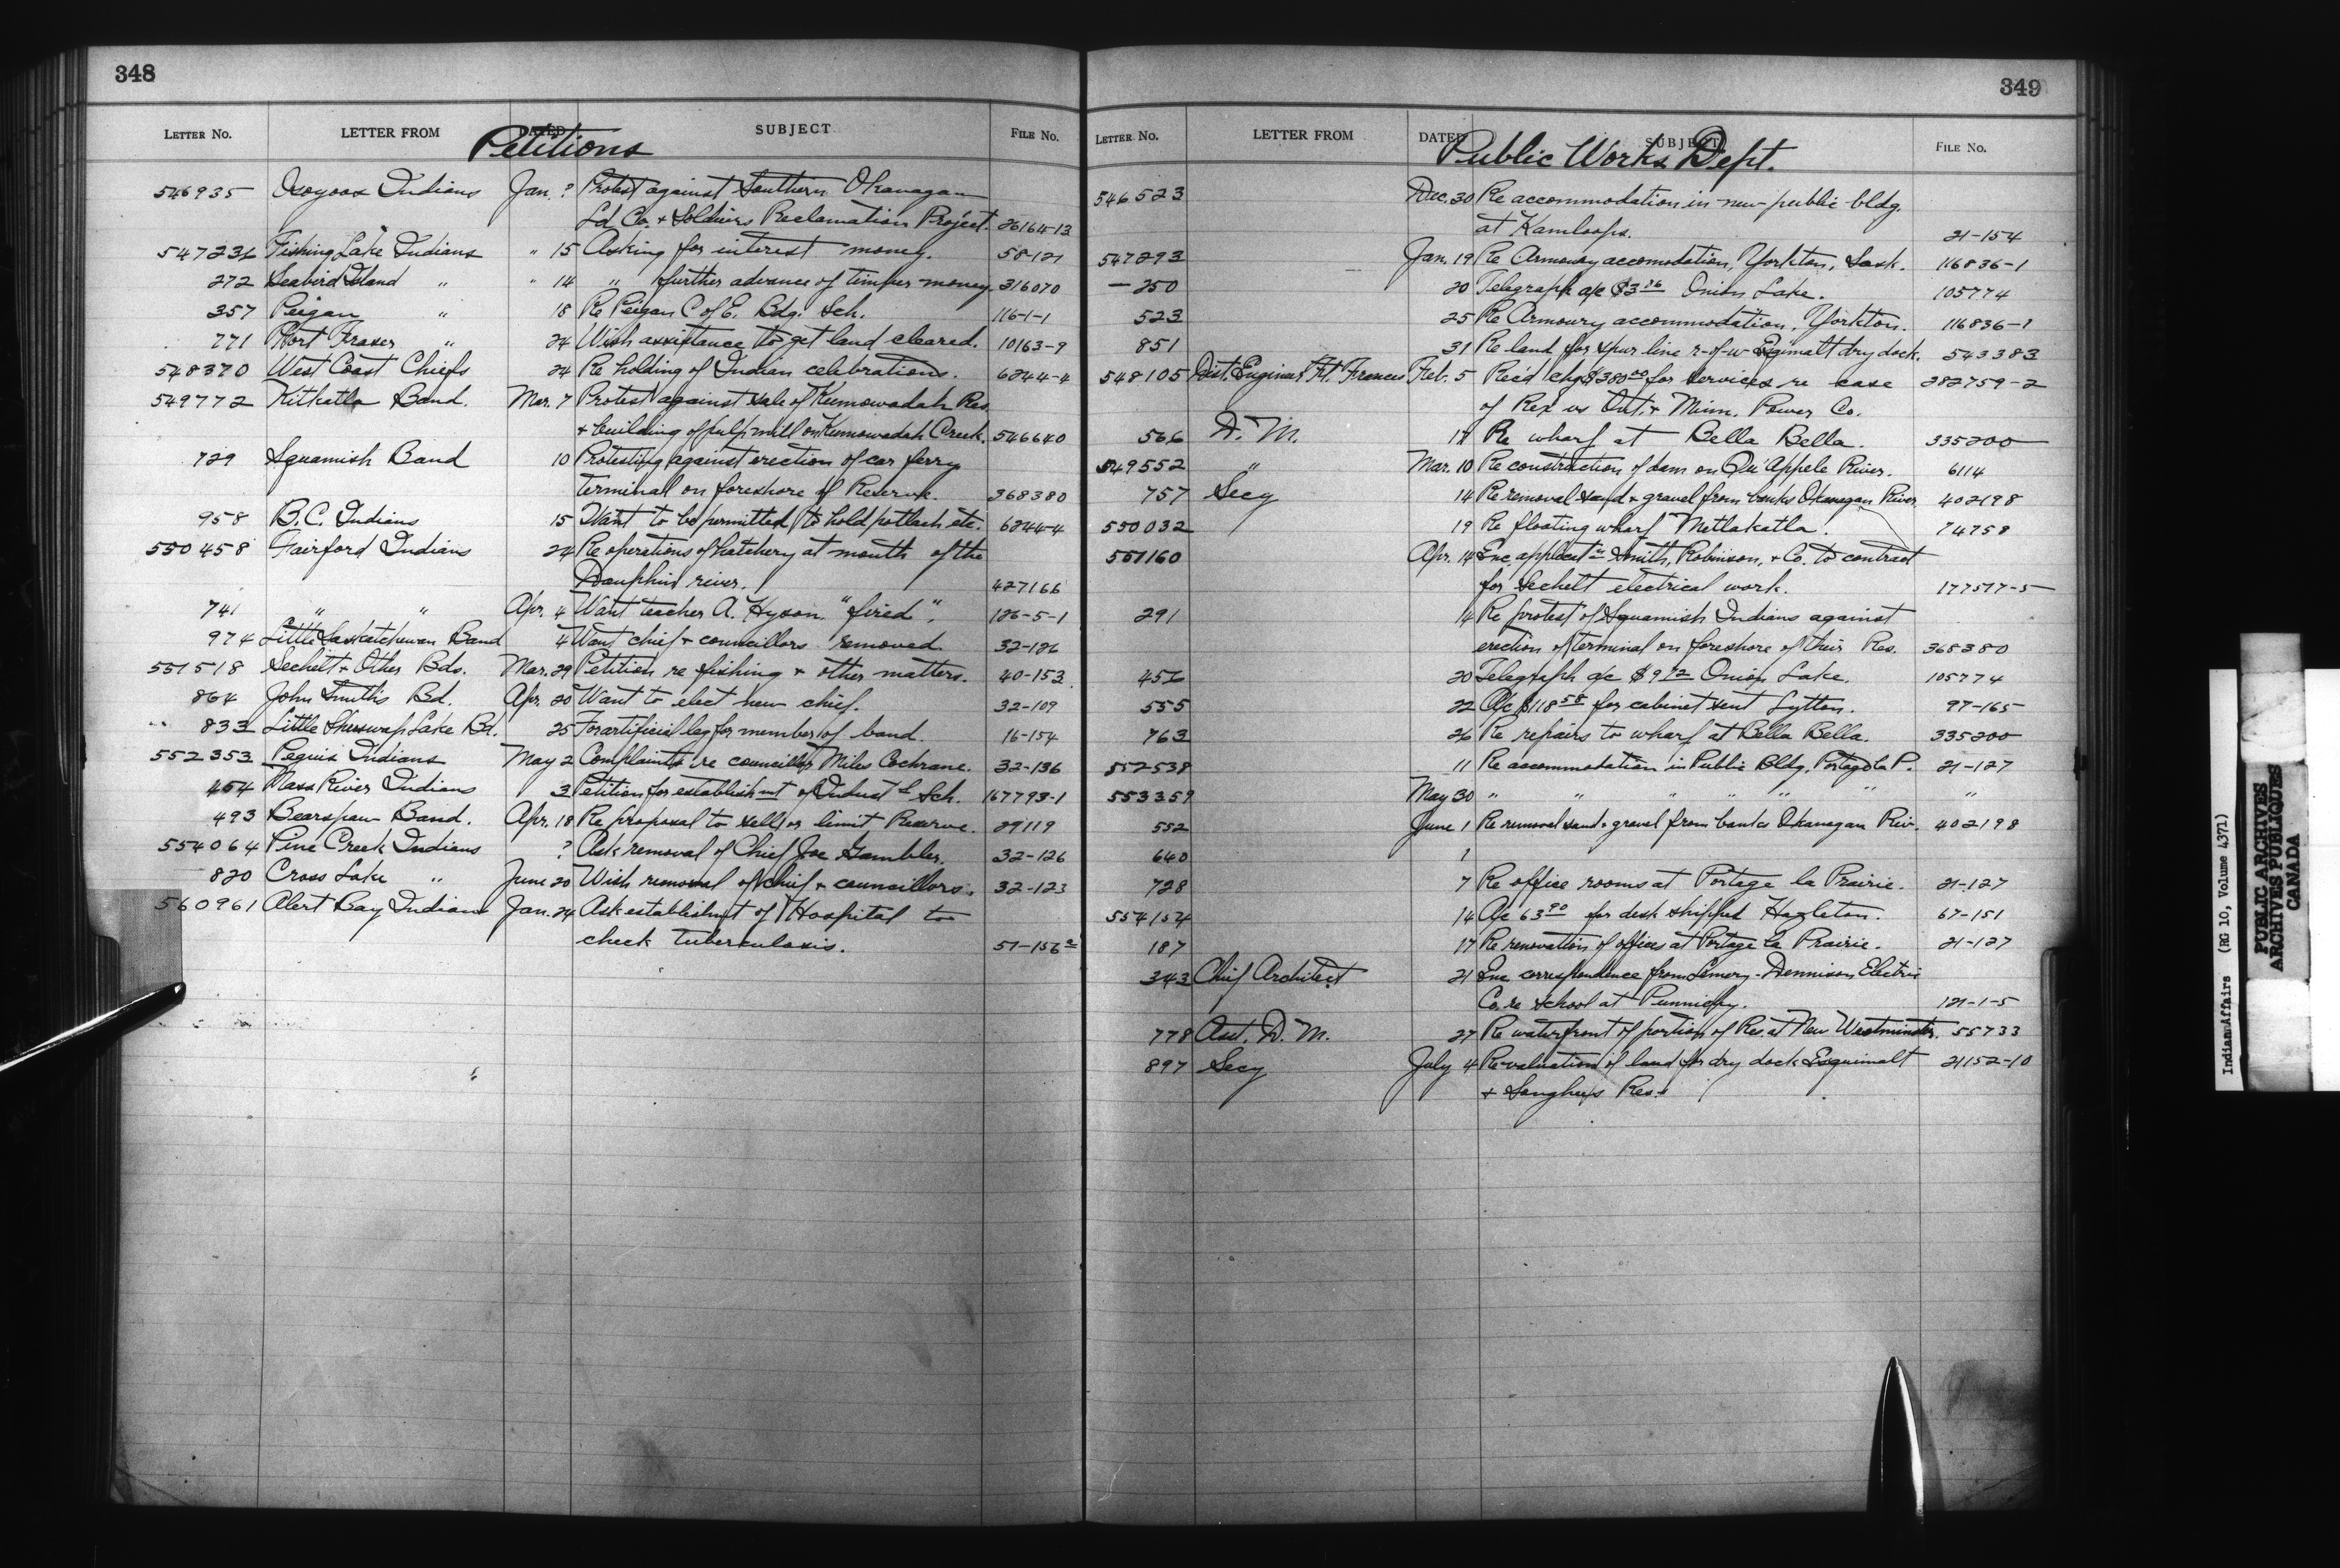 348
LETTER NO. LETTER FROM DATED SUBJECT FILE No.
Petitions
546935 Osoyoos Indians Jan. ? Protest against Southern Okanagan
Ld Co. & Soldiers Reclamation Project. 26164-13
547236 Fishing Lake Indians " 15 Asking for interest money. 58-121
272 Seabird Island " " 14 " further advance of timber money. 316070
357 Peigan " 18 Re Peigan C of E. Bdg. Sch. 116-1-1
771 Fort Fraser " 24 Wish assistance to get land cleared. 10163-9
548370 West Coast Chiefs 24 Re holding of Indian celebrations. 6244-4
549772 Kitkatla Band. Mar. 7 Protest against sale of Kumowadah Res.
& building of pulp mill on Kumowadah Creek. 546640
729 Squamish Band 10 Protesting against erection of car ferry
terminal on foreshore of Reserve. 368380
958 B.C. Indians 15 Want to be permitted to hold potlach etc. 6244-4
550458 Fairford Indians 24 Re operations of hatchery at mouth of the
Dauphin river. 427166
741 " " Apr. 4 Want teacher A. Hyson "fired". 126-5-1
974 Little Saskatchewan Band 4 Want chief & councillors removed. 32-126
551518 Sechelt & Other Bds. Mar. 29 Petition re fishing & other matters. 40-153
864 John Smith's Bd. Apr. 20 Want to elect new chief. 32-109
833 Little Shuswap Lake Bd. 25 For artificial leg for member of band. 16-154
552353 Peguis Indians May 2 Complaints re councillor Miles Cochrane. 32-136
454 Nass River Indians 3 Petition for establishmt of Indust'l Sch. 167793-1
493 Bearspaw Band. Apr. 18 Re proposal to sell or limit Reserve. 29119
554064 Pine Creek Indians ? Ask removal of Chief Joe Gambler. 32-126
820 Cross Lake " June 20 Wish removal of chief & councillors. 32-123
560961 Alert Bay Indians Jan. 24 Ask establishmt of Hospital to
check tuberculosis. 51-156
349
LETTER NO. LETTER FROM DATED SUBJECT FILE No.
Public Works Dept.
546523 Dec. 30 Re accommodation in new public bldg.
at Kamloops. 21-154
547293 Jan. 19 Re Armoury accomodation, Yorkton, Sask. 116836-1
— 250 20 Telegraph a/c $3.26 Onion Lake. 105774
523 25 Re Armoury accommodation, Yorkton. 116836-1
851 31 Re land for spur line r-of-w Esquimalt dry dock. 543383
548105 Dist. Engineer, Ft. Frances Feb. 5 Rec'd chq $380.00 for services re case 282759-2
of Rex vs Ont. & Minn. Power Co.
566 D. M. 17 Re wharf at Bella Bella. 335200
549552 " Mar. 10 Re construction of dam on Qu'Appele River. 6114
757 Secy 14 Re removal sand & gravel from banks Okanagan River 402198
550032 19 Re floating wharf Metlakatla. 74758
551160 Apr. 14 Enc applicat'n Smith, Robinson, & Co. to contract
for Sechelt electrical work. 177517-5
291 14 Re protest of Squamish Indians against
erection of terminal on foreshore of their Res. 368380
456 20 Telegraph a/c $9.72 Onion Lake. 105774
555 22 A/c $118.58 for cabinet sent Lytton. 97-165
763 26 Re repairs to wharf at Bella Bella. 335200
552538 11 Re accommodation in Public Bldg, Portage la P. 21-127
553359 May 30 " " " " " " "
552 June 1 Re removal sand & gravel from banks Okanagan Riv. 402198
640 1
728 7 Re office rooms at Portage la Prairie. 21-127
554154 14 A/c 63.90 for desk shipped Hazleton. 67-151
187 17 Re renovation of offices at Portage La Prairie. 21-127
343 Chief Architect 21 Enc correspondence from Dennison Electric
Co. re school at Punnichy. 121-1-5
778 Asst. D. M. 27 Re waterfront of portion of Res. at New Westminster. 55733
897 Secy July 4 Re valuation of land for dry dock Esquimalt 21152-10
& Songhees Res.
IndianAffairs (RG 10, Volume 4371)
PUBLIC ARCHIVES
ARCHIVES PUBLIQUES
CANADA